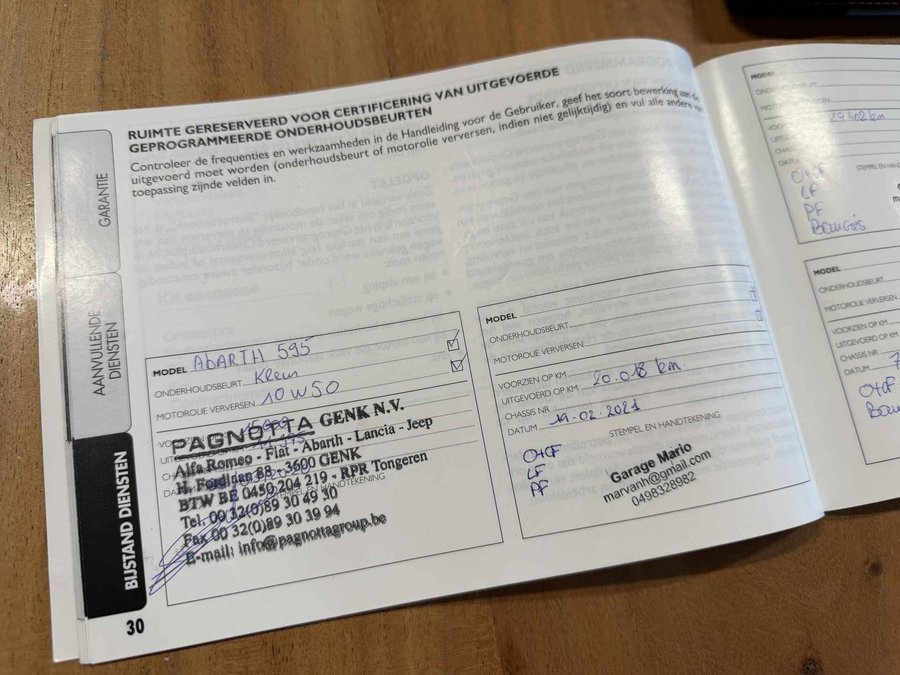 RUIMTE GERESERVEERD VOOR CERTIFICERING VAN UITGEVOERDE
GEPROGRAMMEERDE ONDERHOUDSBEURTEN
Controleer de frequenties en werkzaamheden in de Handleiding voor de Gebruiker, geef het soort bewerking aan die
uitgevoerd moet worden (onderhoudsbeurt of motorolie verversen, indien niet gelijktijdig) en vul alle andere van
toepassing zijnde velden in.
GARANTIE
AANVULLENDE
DIENSTEN
BIJSTAND DIENSTEN
MODEL ABARTH 595
ONDERHOUDSBEURT Klein
MOTOROLIE VERVERSEN 10W50
PAGNOTTA GENK N.V.
Alfa Romeo - Fiat - Abarth - Lancia - Jeep
H. Fordlaan 88 - 3600 GENK
BTW BE 0450 204 219 - RPR Tongeren
Tel. 00 32(0)89 30 49 30
Fax 00 32(0)89 30 39 94
E-mail: info@pagnottagroup.be
30
MODEL
ONDERHOUDSBEURT
MOTOROLIE VERVERSEN
VOORZIEN OP KM
UITGEVOERD OP KM 20.018 km
CHASSIS NR.
DATUM 19.02.2021
STEMPEL EN HANDTEKENING
O+CF
LF
PF
Garage Mario
marvanh@gmail.com
0498328982
MODEL
29.402 km
DATUM
STEMPEL EN
O+CF
LF
PF
Bougies
MODEL
ONDERHOUDSBEURT
MOTOROLIE VERVERSEN
VOORZIEN OP KM
UITGEVOERD OP KM
CHASSIS NR.
DATUM
O+CF